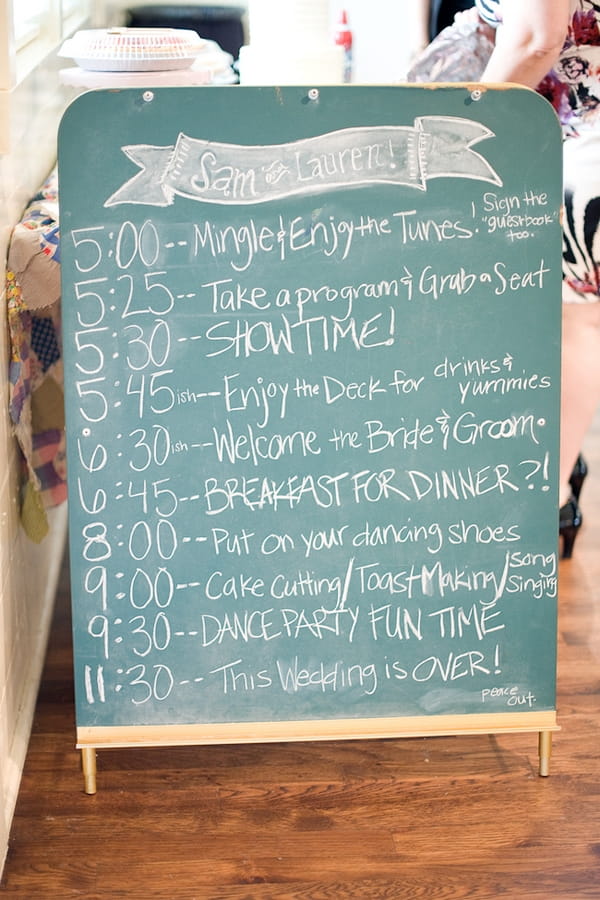 Sam and Lauren!
5:00-- Mingle & Enjoy the Tunes. ! Sign the "guestbook" too.
5:25-- Take a program & Grab a Seat
5:30-- SHOWTIME!
5:45ish-- Enjoy the Deck for drinks & yummies
6:30ish-- Welcome the Bride & Groom.
6:45-- BREAKFAST FOR DINNER?!
8:00-- Put on your dancing shoes
9:00-- Cake Cutting/Toast Making/Song Singing
9:30-- DANCE PARTY FUN TIME
11:30-- This Wedding is OVER!
peace out.